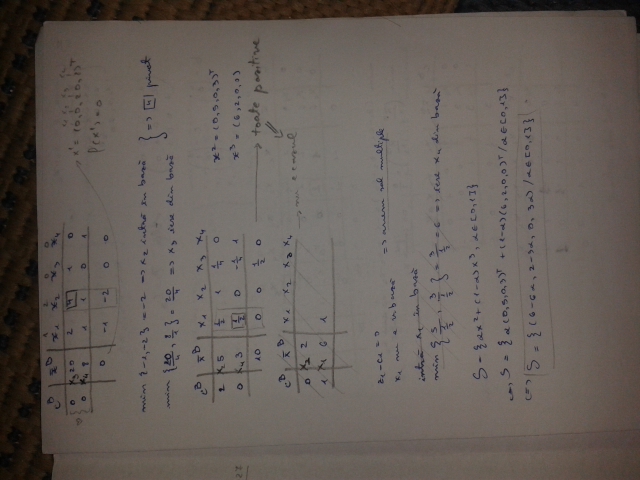 1 2 0 0
c^B x^B x1 x2 x3 x4
0 x3 20 2 4 1 0
0 x4 8 1 1 0 1
0 -1 -2 0 0
x¹ = (0, 0, 20, 8)^T
f(x¹) = 0
min {-1, -2} = -2 => x2 intră în bază
min {20/4, 8/1} = 20/4 => x3 iese din bază
} => 4 pivot
c^B x^B x1 x2 x3 x4
2 x 5 1/2 1 1/4 0
0 x4 3 1/2 0 -1/4 1
10 0 0 1/2 0
x² = (0, 5, 0, 3)^T
x³ = (6, 2, 0, 0)
→ toate pozitive
c^B x^B x1 x2 x3 x4
0 x2 2
1 x1 6 1
x1 nu e în bază => avem sol multiple
intră x1 în bază
min {5/(1/2), 3/(1/2)} = 3/(1/2) = 6 => iese x4 din bază
S = {αx² + (1-α)x³, α∈[0,1]}
<=> S = {α(0,5,0,3)^T + (1-α)(6,2,0,0)^T / α∈[0,1]}
<=> S = {(6-6α, 2+3α, 0, 3α) / α∈[0,1]}